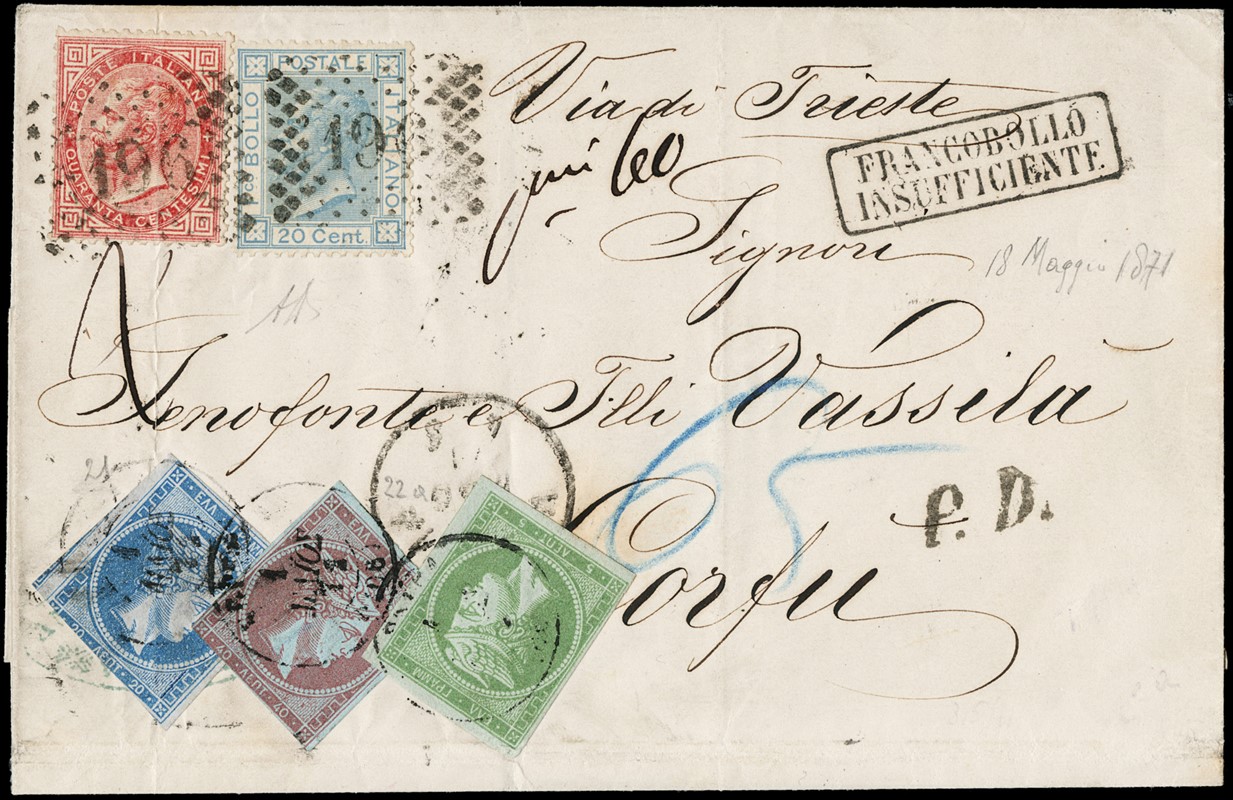 POSTE ITALIANE
QUARANTA CENTESIMI
196
POSTALE
BOLLO
ITALIANO
20 Cent.
196
Via di Trieste
60
FRANCOBOLLO
INSUFFICIENTE
Signori
18 Maggio 1871
Senofonte e F.lli Vassilà
65
P. D.
Corfu
21
22
ΕΛΛ
20 ΛΕΠΤ. 20
ΕΛΛ
40 ΛΕΠΤ. 40
5 ΛΕΠΤ. 5
ΕΛΛ ΓΡΑΜΜ